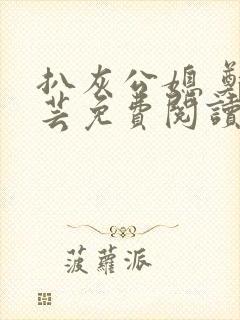 扒灰公媳 鄭
芸免費閱讀
菠蘿派